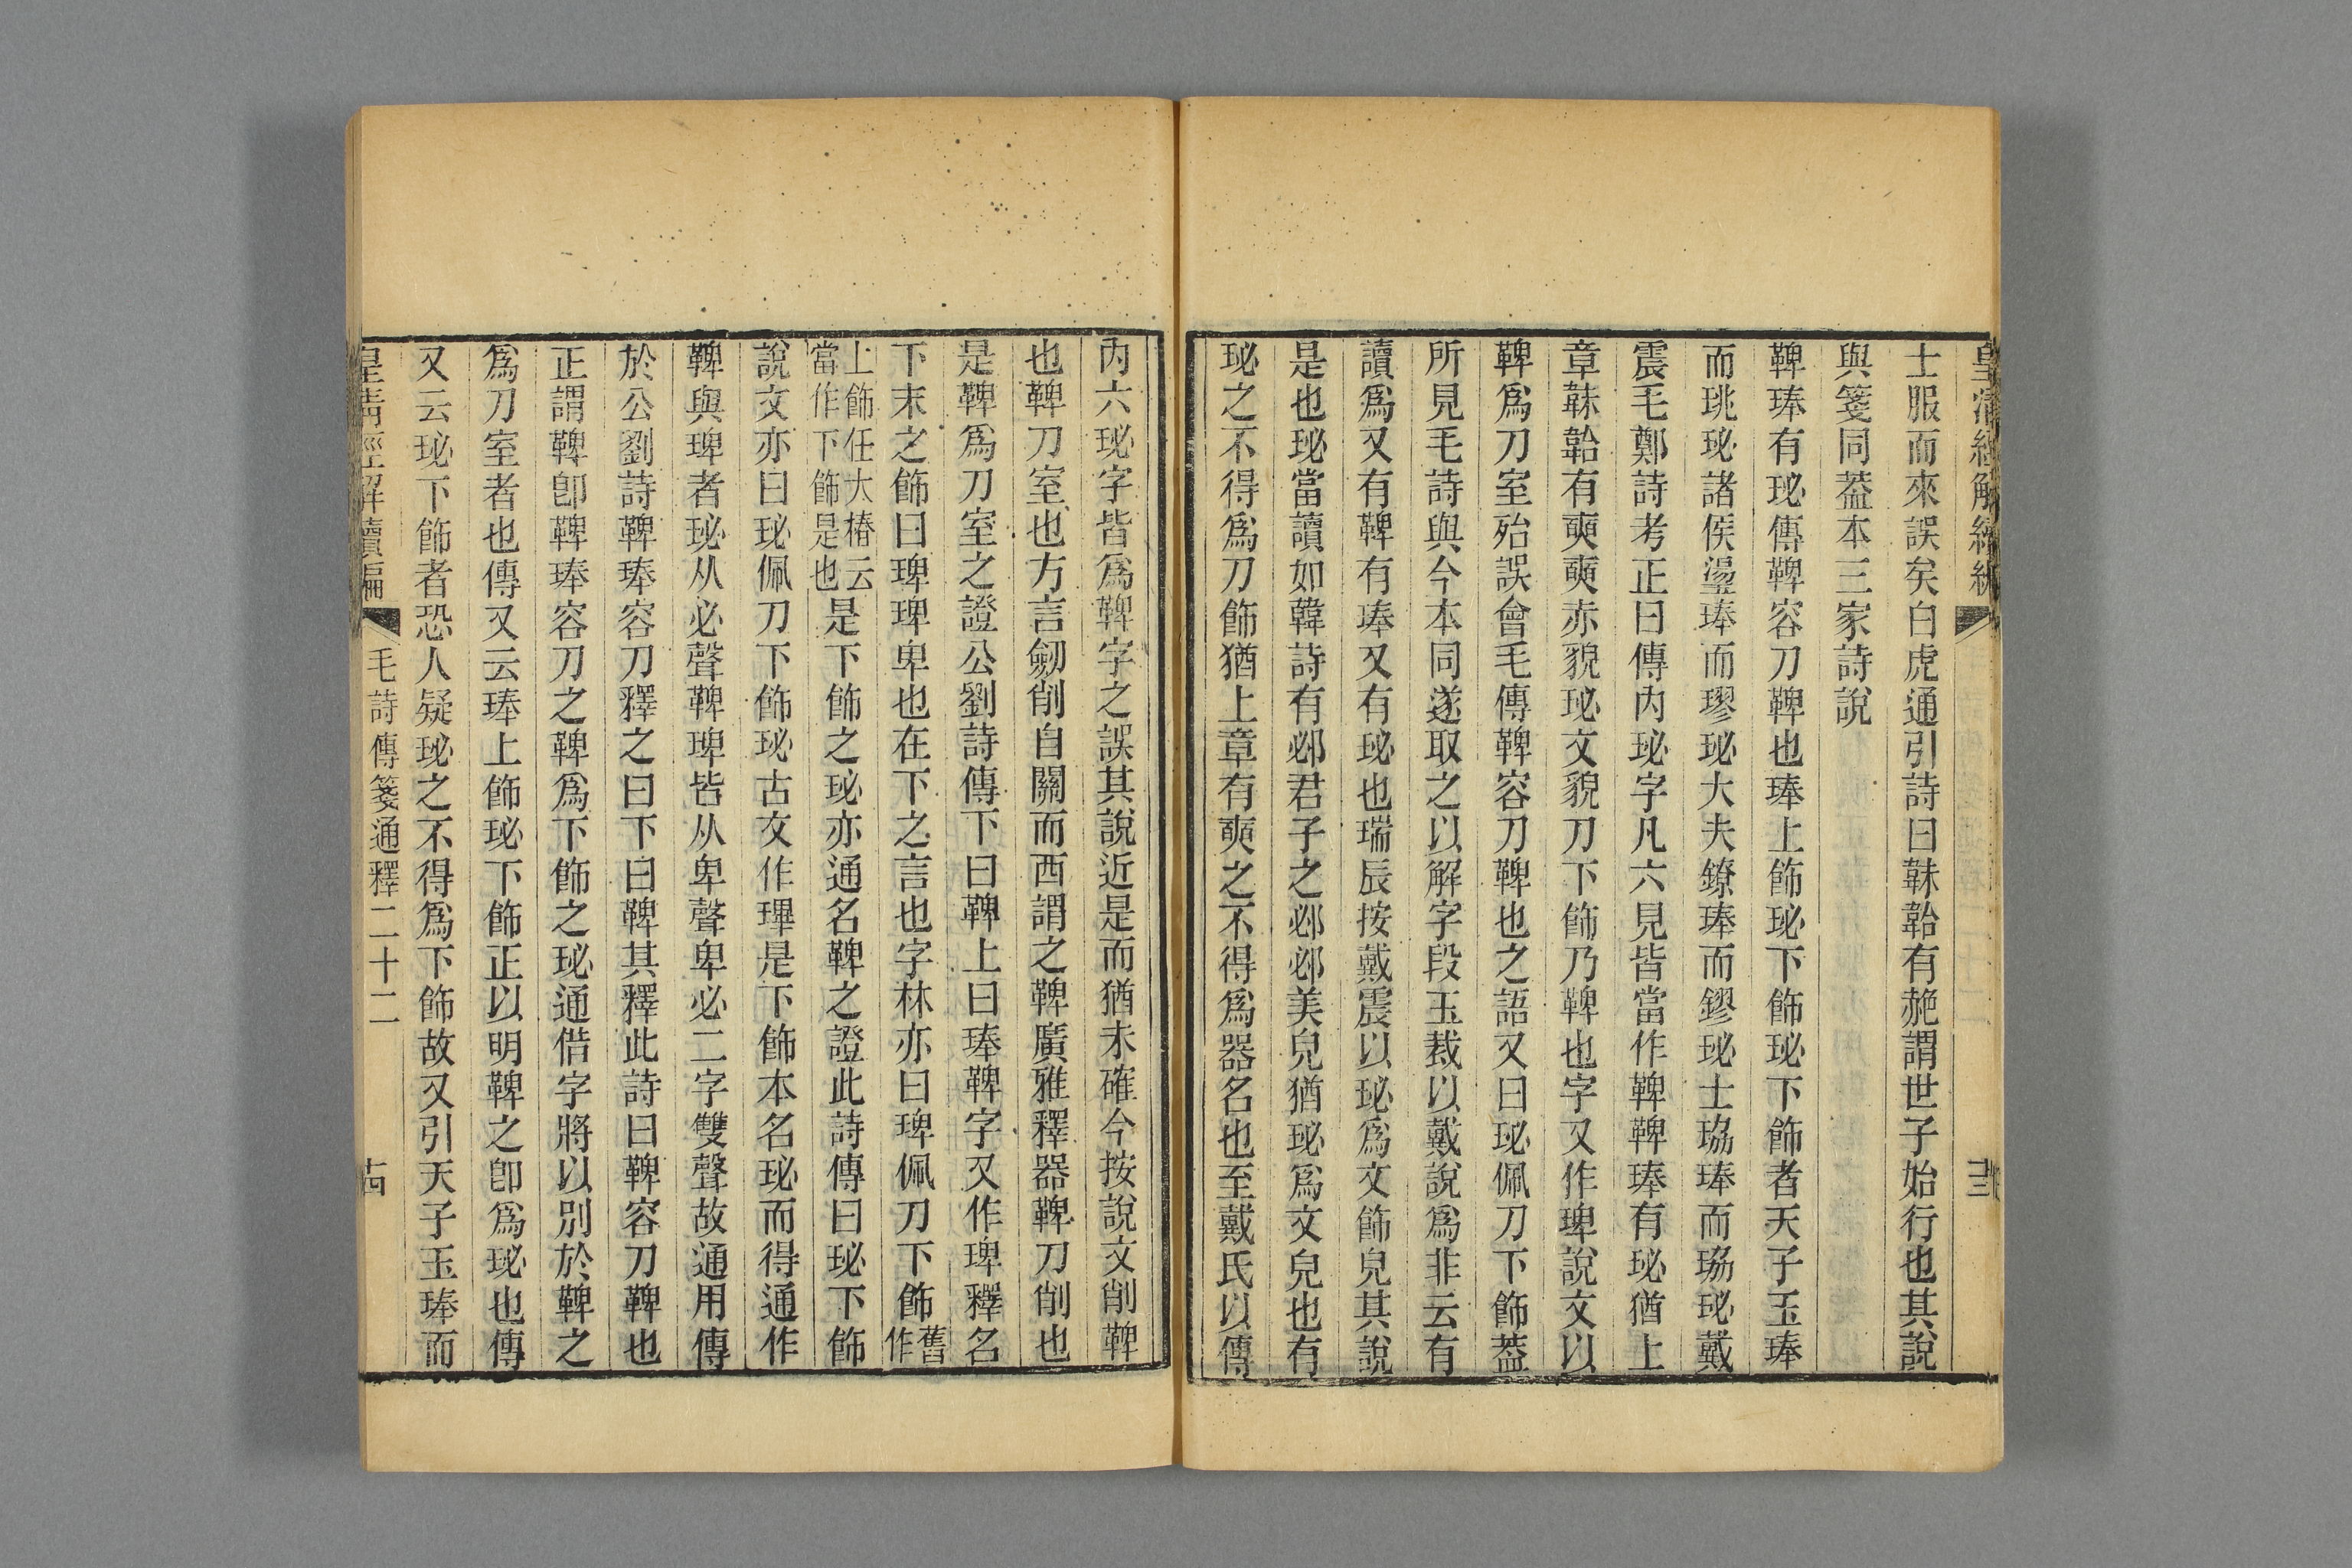 士服而來誤矣白虎通引詩曰韎韐有赩謂世子始行也其說
與箋同葢本三家詩說
鞞琫有珌傳鞞容刀鞞也琫上飾珌下飾珌下飾者天子玉琫
而珧珌諸侯璗琫而璆珌大夫鐐琫而鏐珌士珕琫而珕珌戴
震毛鄭詩考正曰傳內珌字凡六見皆當作鞞鞞琫有珌猶上
章韎韐有奭奭赤貌珌文貌刀下飾乃鞞也字又作琕說文以
鞞爲刀室殆誤會毛傳鞞容刀鞞也之語又曰珌佩刀下飾葢
所見毛詩與今本同遂取之以解字段玉裁以戴說爲非云有
讀爲又有鞞有琫又有珌也瑞辰按戴震以珌爲文飾皃其說
是也珌當讀如韓詩有邲君子之邲邲美皃猶珌爲文皃也有
珌之不得爲刀飾猶上章有奭之不得爲器名也至戴氏以傳
內六珌字皆爲鞞字之誤其說近是而猶未確今按說文削鞞
也鞞刀室也方言劒削自關而西謂之鞞廣雅釋器鞞刀削也
是鞞爲刀室之證公劉詩傳下曰鞞上曰琫鞞字又作琕釋名
下末之飾曰琕琕卑也在下之言也字林亦曰琕佩刀下飾舊作
上飾任大椿云當作下飾是也是下飾之珌亦通名鞞之證此詩傳曰珌下飾
說文亦曰珌佩刀下飾珌古文作㻫是下飾本名珌而得通作
鞞與琕者珌从必聲鞞琕皆从卑聲卑必二字雙聲故通用傳
於公劉詩鞞琫容刀釋之曰下曰鞞其釋此詩曰鞞容刀鞞也
正謂鞞卽鞞琫容刀之鞞爲下飾之珌通借字將以別於鞞之
爲刀室者也傳又云琫上飾珌下飾正以明鞞之卽爲珌也傳
又云珌下飾者恐人疑珌之不得爲下飾故又引天子玉琫而
皇清經解續編
毛詩傳箋通釋二十二
十四